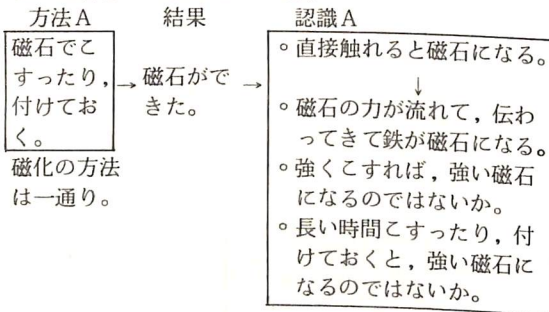 方法A
磁石でこ
すったり，
付けてお
く。
磁化の方法
は一通り。
結果
→磁石がで→
きた。
認識A
◦直接触れると磁石になる。
↓
◦磁石の力が流れて，伝わ
ってきて鉄が磁石になる。
◦強くこすれば，強い磁石
になるのではないか。
◦長い時間こすったり，付
けておくと，強い磁石に
なるのではないか。